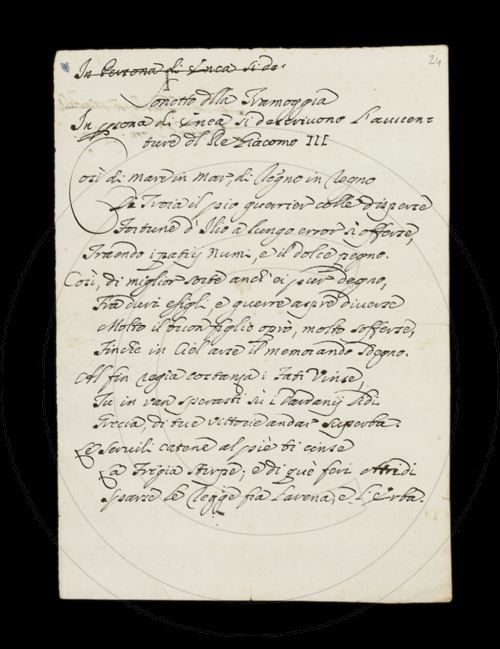 24
In Persona di Enea si de.
Sonetto della Tramoggia
In persona di Enea si descrivono l'avven-
ture del Re Giacomo III
Così di mare in mar, di Regno in Regno
Di Troia il pio guerrier colle disperse
Fortune d'Ilio a lungo error s'offerse,
Traendo i patrij Numi, e il dolce pegno.
Così, di miglior sorte anch'ei pur degno,
Fra duri esigli e guerre aspre diverse
Molto il buon figlio oprò, molto sofferse,
Finche in Ciel arse il memorando sdegno.
Al fin regia costanza i Fati vinse,
Tu in van sperasti sù i Dardanij Lidi
Grecia, di tue vittorie andar superba.
Le servili catene al piè ti cinse
La Frigia stirpe; e di què feri
sparse le Regge fia l'arena, e l'erba.